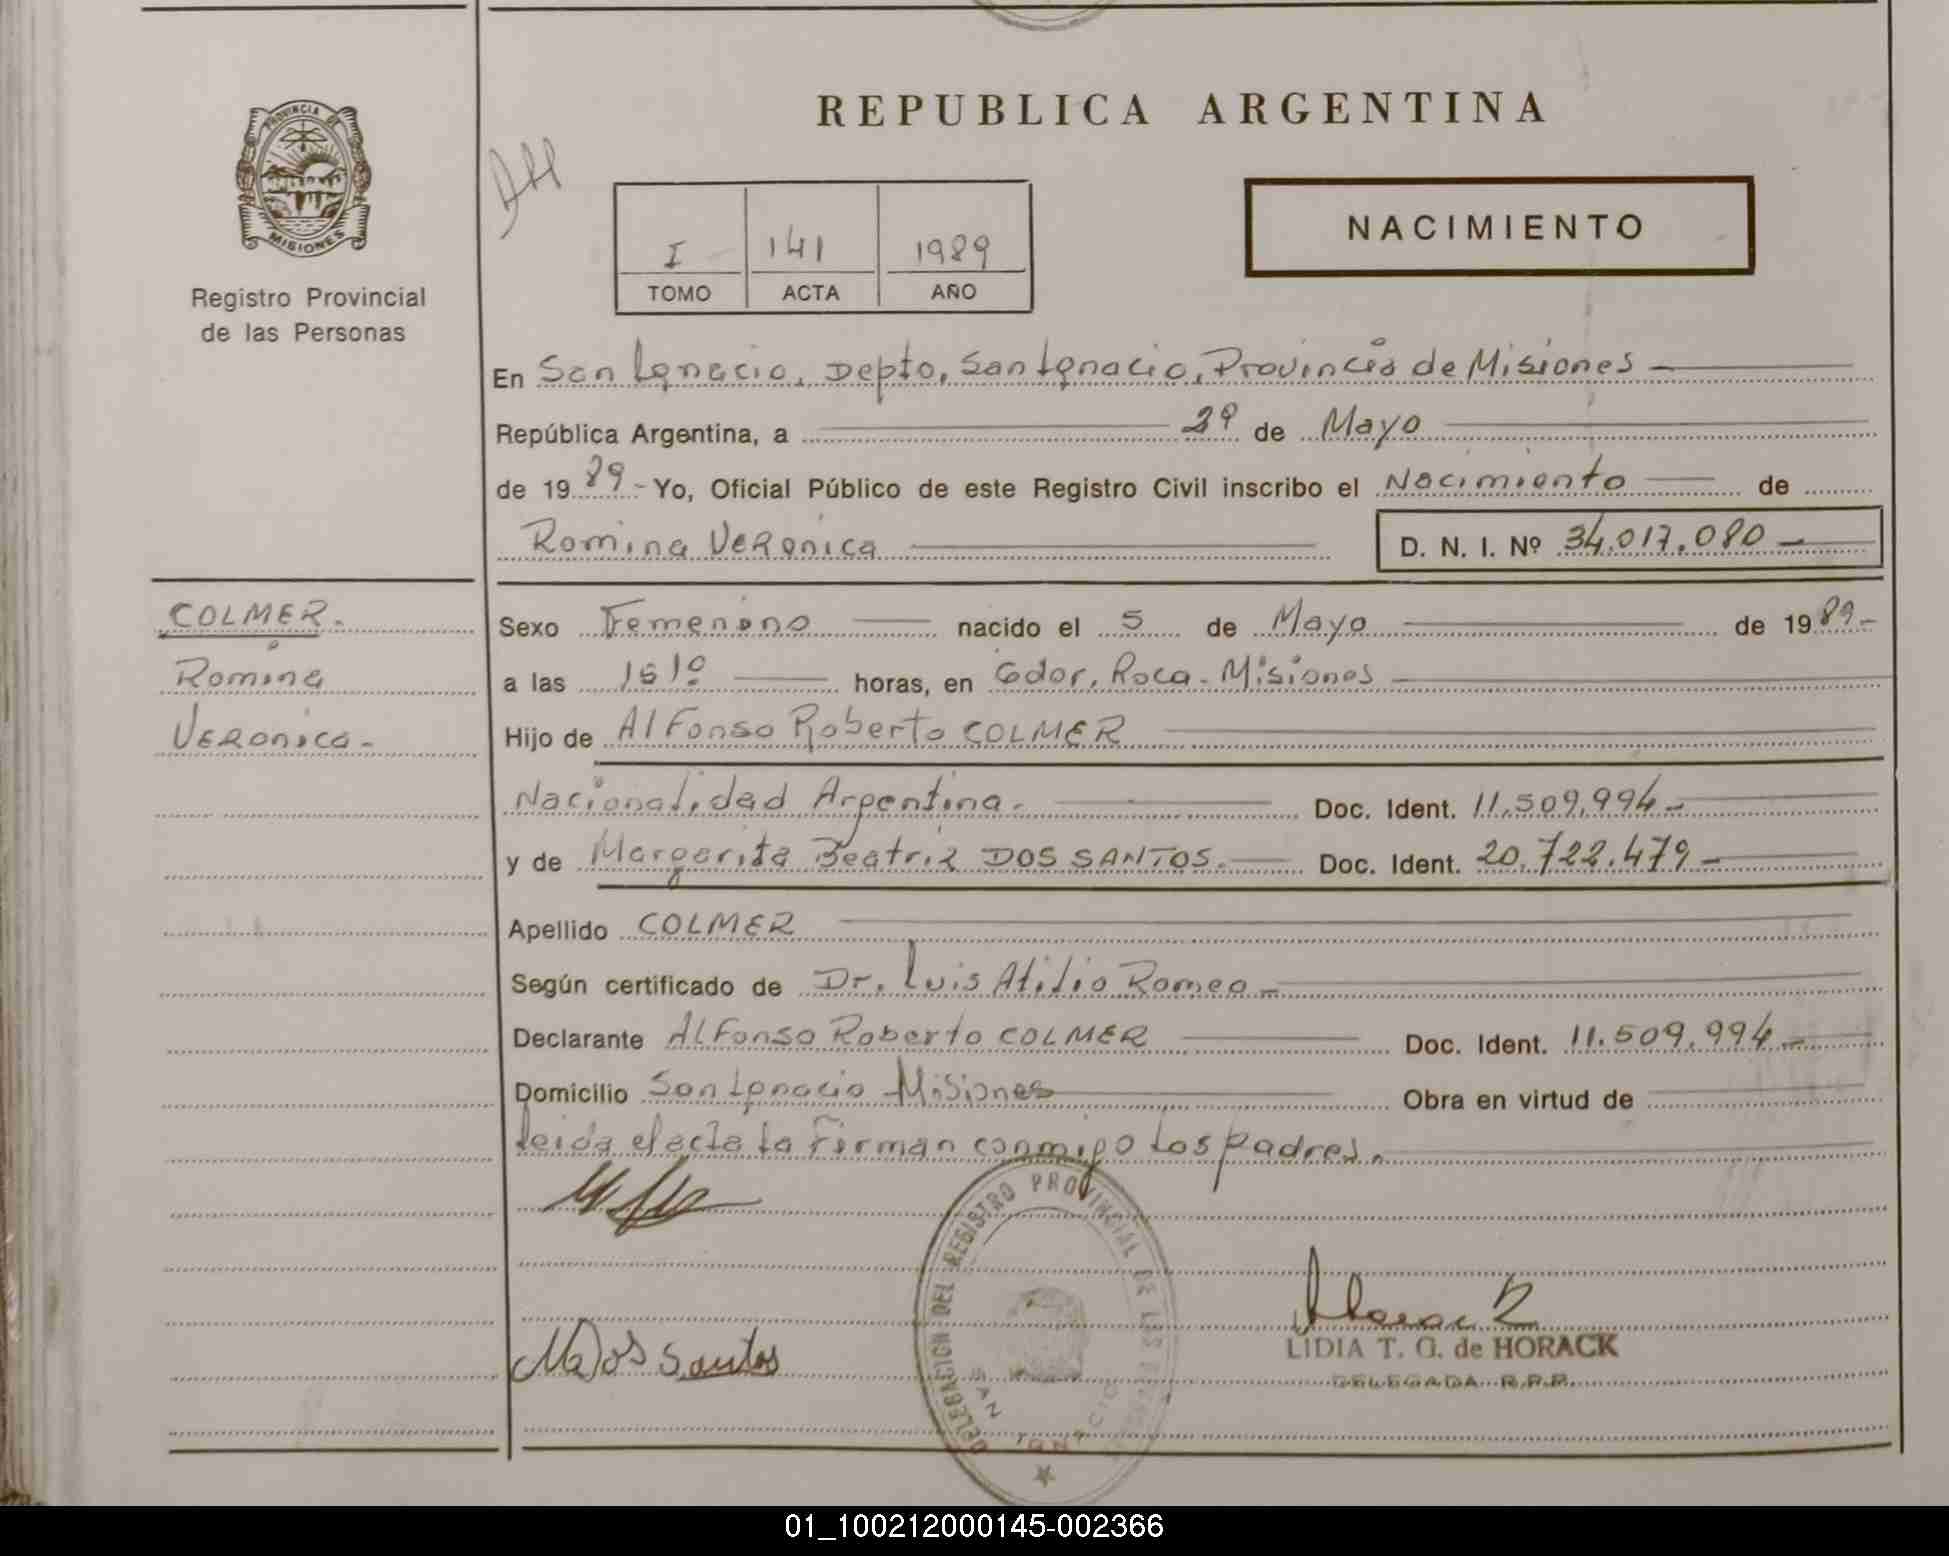 PROVINCIA DE
MISIONES
Registro Provincial
de las Personas
COLMER.
Romina
Veronica.-
REPUBLICA ARGENTINA
NACIMIENTO
I 141 1989
TOMO ACTA AÑO
En San Ignacio, Depto, San Ignacio, Provincia de Misiones
República Argentina, a 29 de Mayo
de 19 89.- Yo, Oficial Público de este Registro Civil inscribo el Nacimiento de
Romina Veronica D. N. I. Nº 34.017.080
Sexo Femenino nacido el 5 de Mayo de 19 89.-
a las horas, en Gdor. Roca - Misiones
Hijo de Alfonso Roberto COLMER
Nacionalidad Argentina. Doc. Ident. 11.509.994
y de Margarita Beatriz DOS SANTOS. Doc. Ident. 20.722.479
Apellido COLMER
Según certificado de Dr. Luis Atilio Romeo
Declarante Alfonso Roberto COLMER Doc. Ident. 11.509.994
Domicilio San Ignacio Misiones Obra en virtud de
leida el acta la firman conmigo los padres.
DELEGACION DEL REGISTRO PROVINCIAL DE LAS
SAN IGNACIO
Horack
LIDIA T. G. de HORACK
DELEGADA R.P.P.
M Dos Santos
01_100212000145-002366